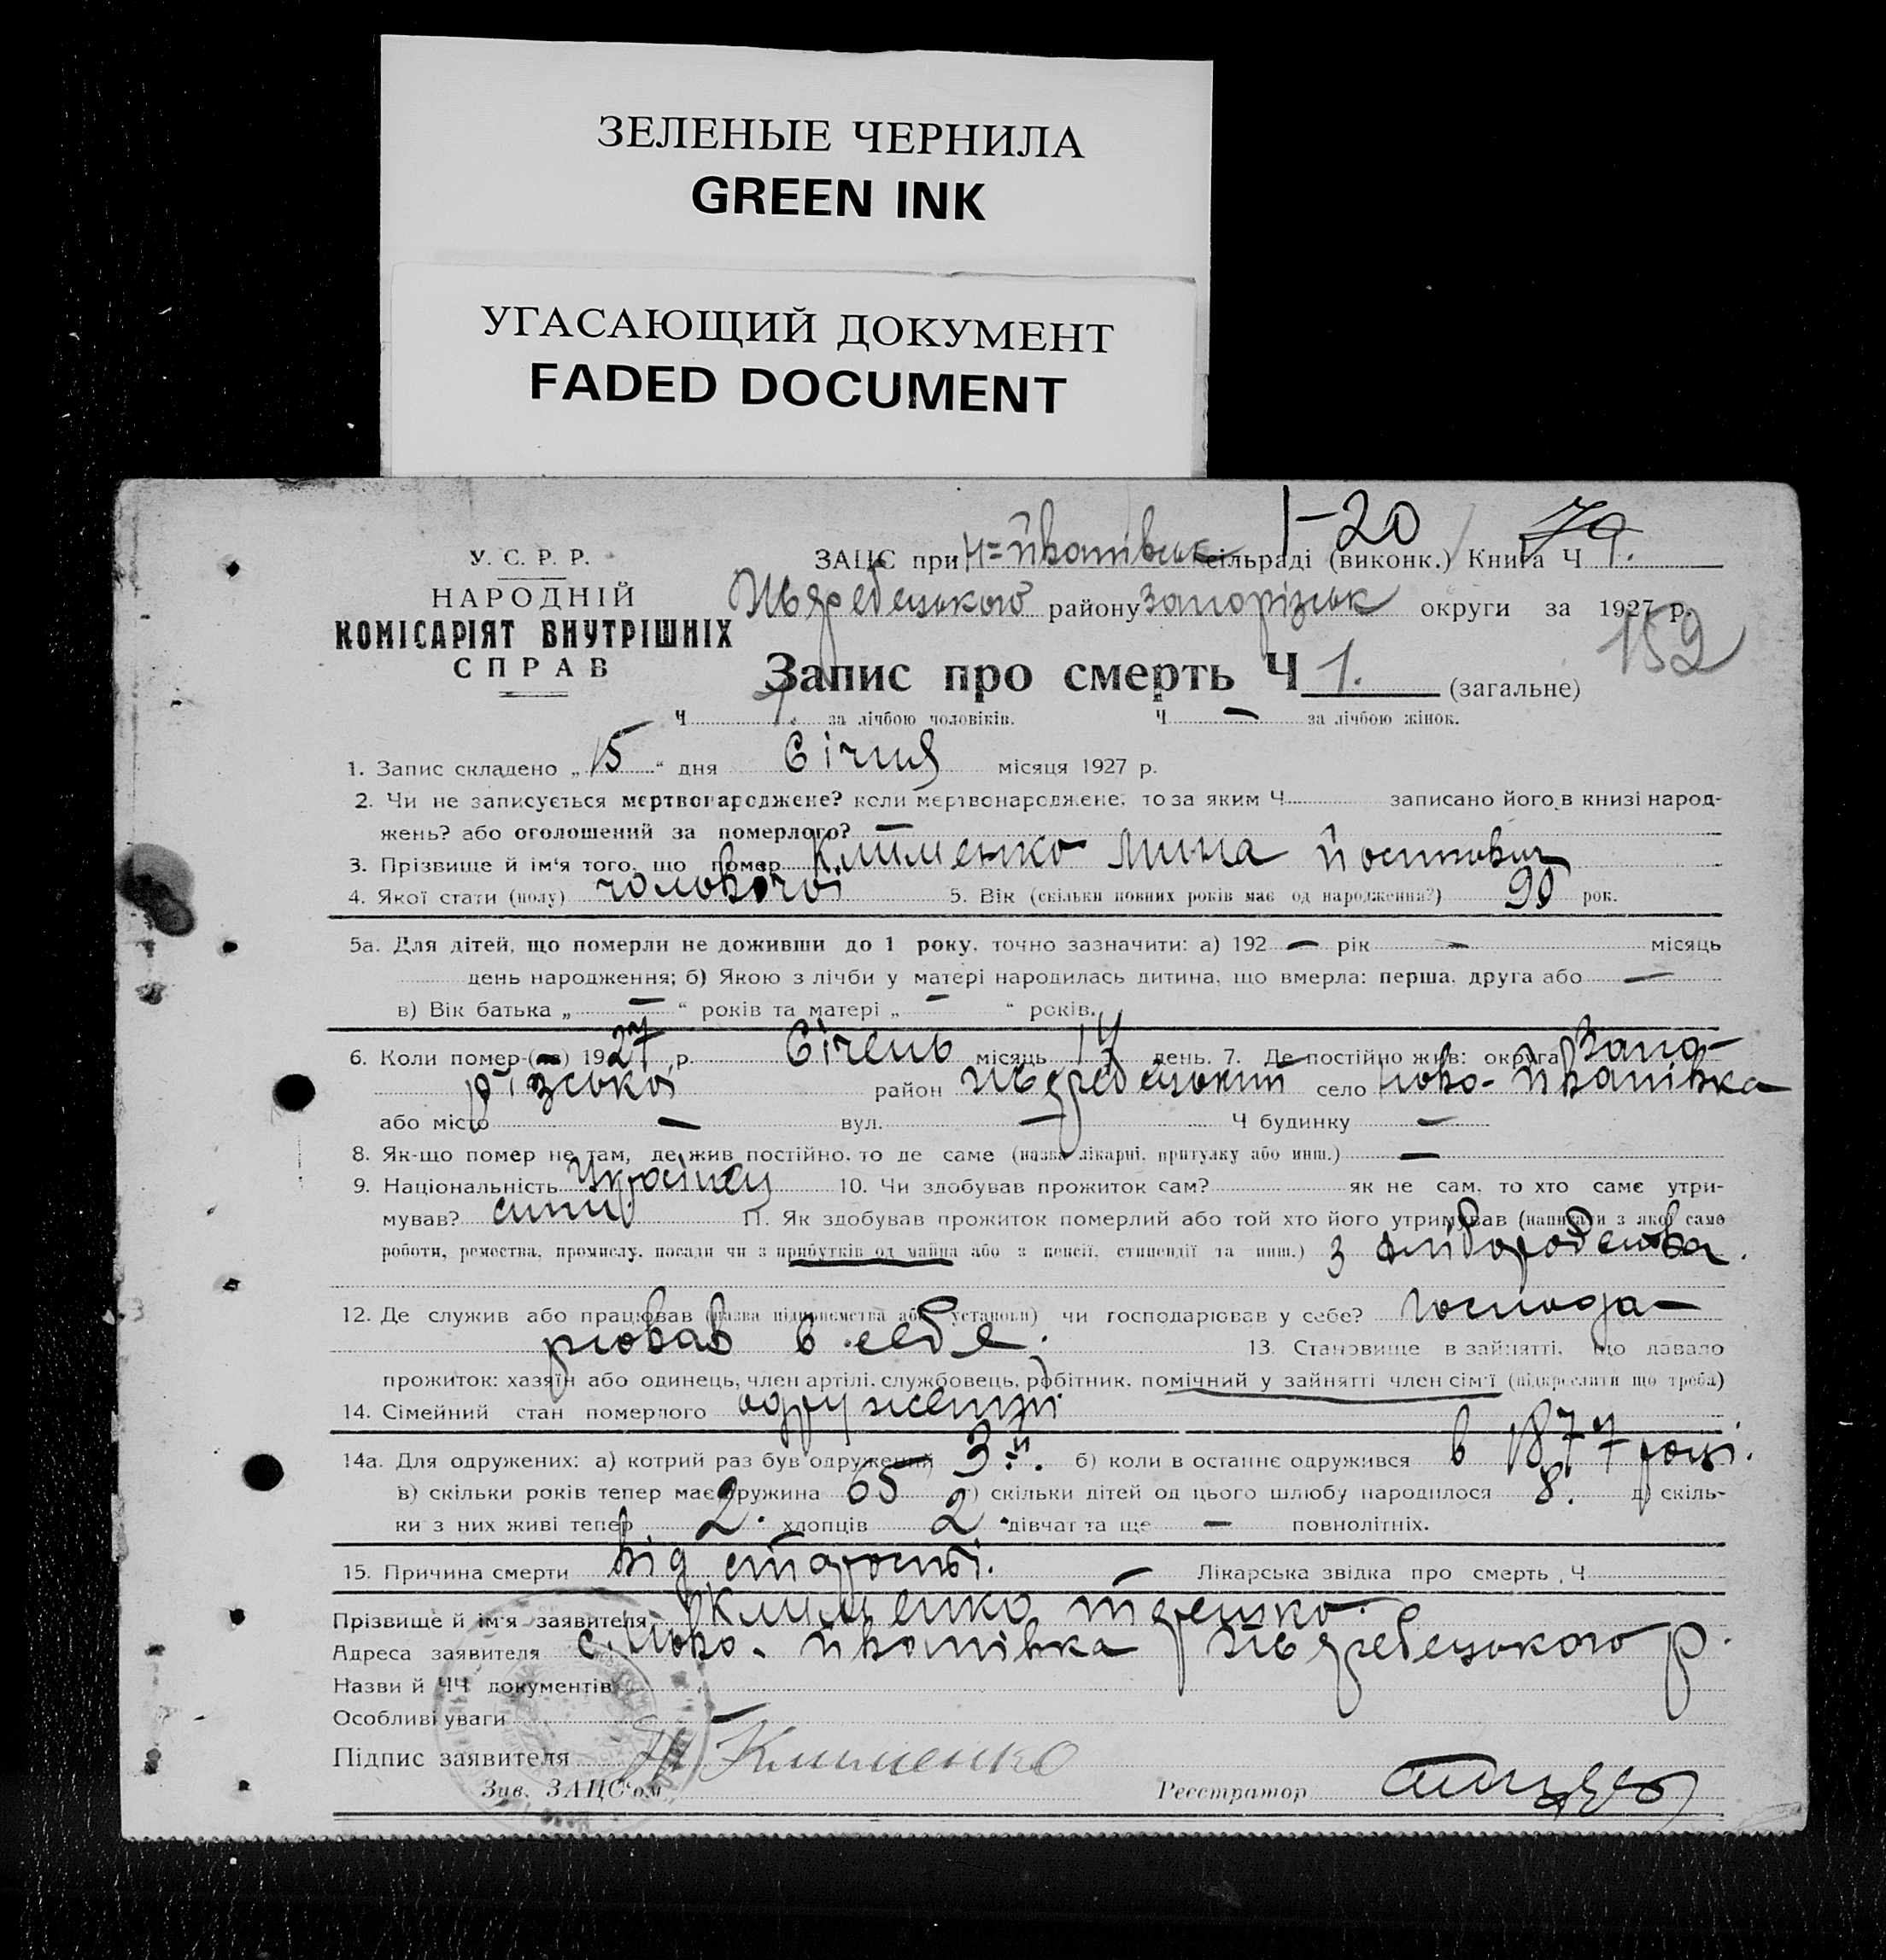 ЗЕЛЕНЫЕ ЧЕРНИЛА
GREEN INK
УГАСАЮЩИЙ ДОКУМЕНТ
FADED DOCUMENT
1-20 79
У. С. Р. Р.
НАРОДНІЙ
КОМІСАРІЯТ ВНУТРІШНІХ
СПРАВ
ЗАЦС при сільраді (виконк.) Книга Ч 1.
Жеребецького району Запорізьк округи за 1927 р.
152
Запис про смерть Ч 1. (загальне)
Ч 1. за лічбою чоловіків. Ч — за лічбою жінок.
1. Запис складено „ 15 “ дня Січня місяця 1927 р.
2. Чи не записується мертвонароджене? коли мертвонароджене, то за яким Ч записано його в книзі народ-
жень? або оголошений за померлого? —
3. Прізвище й ім'я того, що помер Клименко Мина
4. Якої стати (полу) чоловічої 5. Вік (скільки повних років має од народження?) 90 рок.
5а. Для дітей, що померли не доживши до 1 року, точно зазначити: а) 192 — рік — місяць
день народження; б) Якою з лічби у матері народилась дитина, що вмерла: перша, друга або —
в) Вік батька „ — “ років та матері „ — “ років.
6. Коли помер-(ла) 1927 р. Січень місяць 14 день. 7. Де постійно жив: округа Запо-
різської район Жеребецький село Ново-Іванівка
або місто — вул. — Ч будинку —
8. Як-що помер не там, де жив постійно, то де саме (назва лікарні, притулку або инш.) —
9. Національність Українец 10. Чи здобував прожиток сам? як не сам, то хто саме утри-
мував? сини 11. Як здобував прожиток померлий або той хто його утримував (написати з якої само
роботи, ремества, промислу, посади чи з прибутків од майна або з пенсії, стипендії та инш.) з хліборобства.
12. Де служив або працював (назва підприємства або установи) чи господарював у себе? Господа-
рював в себе. 13. Становище в зайнятті, що давало
прожиток: хазяїн або одинець, член артілі, службовець, робітник, помічний у зайнятті член сім'ї (підкреслити що треба)
14. Сімейний стан померлого одружений
14а. Для одружених: а) котрий раз був одружений 3й. б) коли в останнє одружився в 1877 році.
в) скільки років тепер має дружина 65 г) скільки дітей од цього шлюбу народилося 8. д) скіль-
ки з них живі тепер 2. хлопців 2. дівчат та ще — повнолітніх.
15. Причина смерти від старости. — Лікарська звідка про смерть, Ч
Прізвище й ім'я заявителя Клименко Терешко.
Адреса заявителя с. Ново-Іванівка Жеребецького р.
Назви й ЧЧ документів
Особливі уваги —
Підпис заявителя Клименко
Зав. ЗАЦС'ом Реєстратор